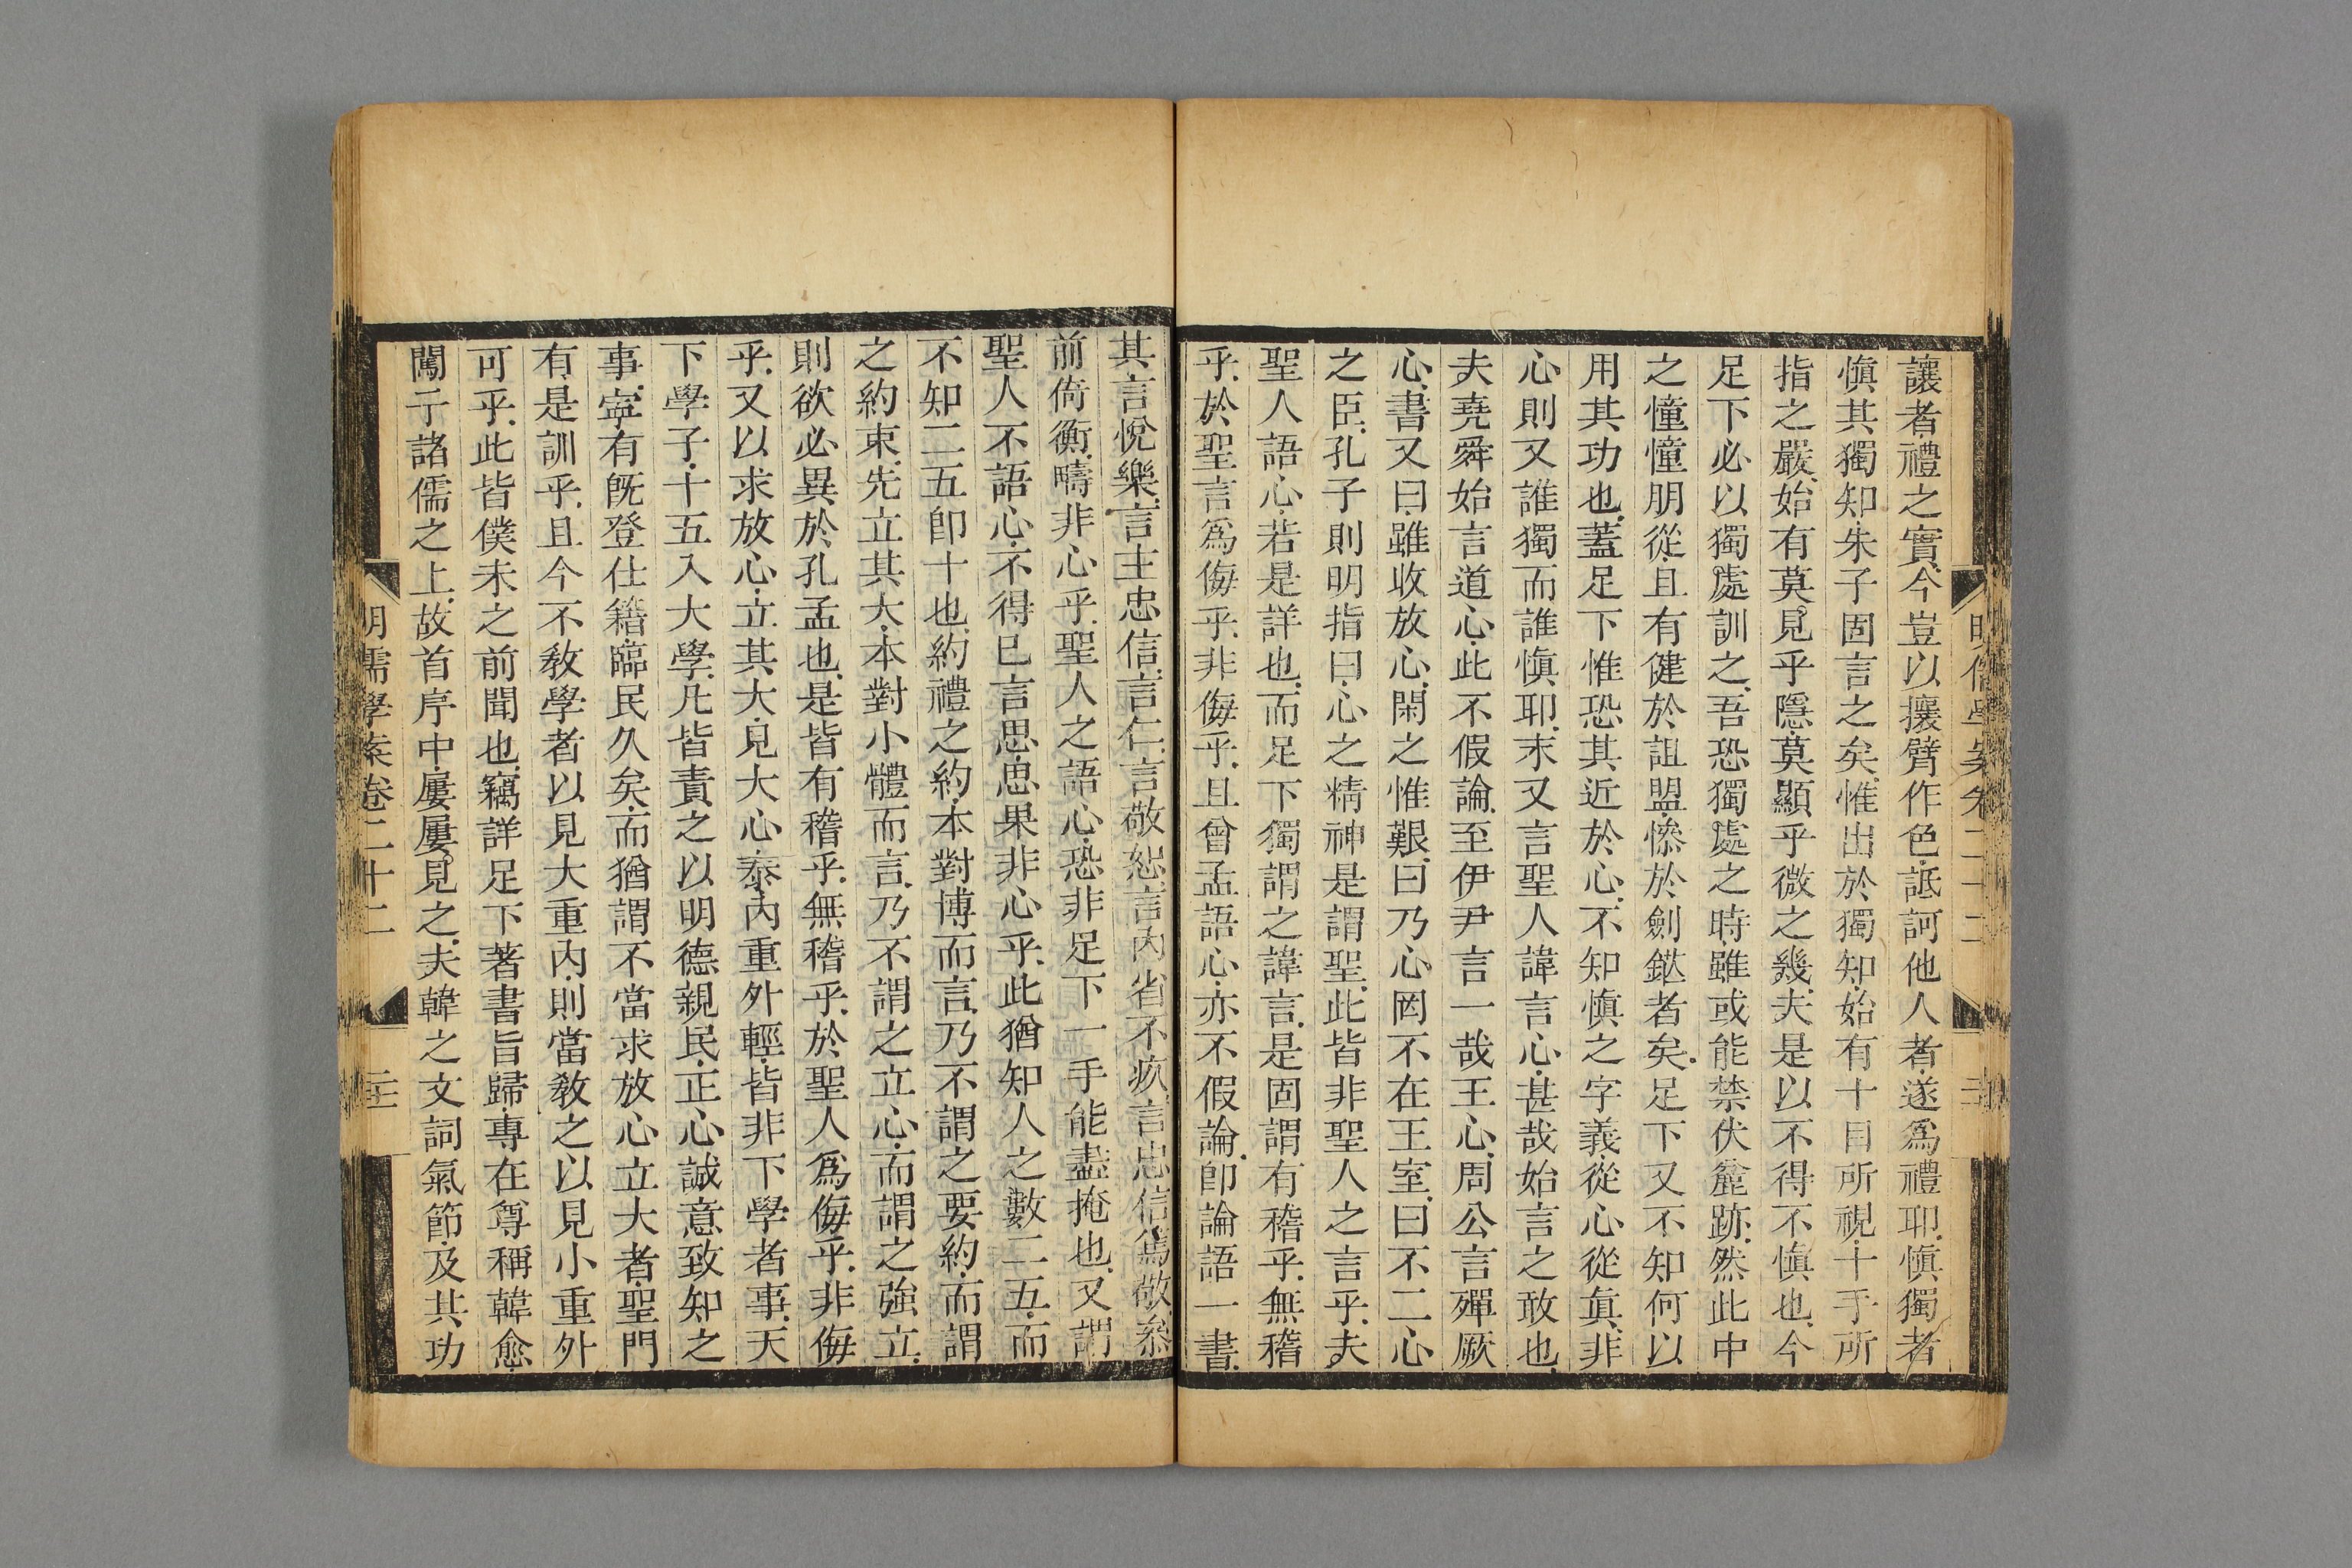 明儒學案卷二十二
讓者禮之實今豈以攘臂作色詆訶他人者遂爲禮耶愼獨者
愼其獨知朱子固言之矣惟出於獨知始有十目所視十手所
指之嚴始有莫見乎隱莫顯乎微之幾夫是以不得不愼也今
足下必以獨處訓之吾恐獨處之時雖或能禁伏麤跡然此中
之憧憧朋從且有健於詛盟慘於劍鋩者矣足下又不知何以
用其功也蓋足下惟恐其近於心不知愼之字義從心從眞非
心則又誰獨而誰愼耶末又言聖人諱言心甚哉始言之敢也
夫堯舜始言道心此不假論至伊尹言一哉王心周公言殫厥
心書又曰雖收放心閑之惟艱曰乃心罔不在王室曰不二心
之臣孔子則明指曰心之精神是謂聖此皆非聖人之言乎夫
聖人語心若是詳也而足下獨謂之諱言是固謂有稽乎無稽
乎於聖言爲侮乎非侮乎且曾孟語心亦不假論卽論語一書
其言悅樂言主忠信言仁言敬恕言內省不疚言忠信篤敬參
前倚衡疇非心乎聖人之語心恐非足下一手能盡掩也又謂
聖人不語心不得已言思思果非心乎此猶知人之數二五而
不知二五卽十也約禮之約本對博而言乃不謂之要約而謂
之約束先立其大本對小體而言乃不謂之立心而謂之強立
則欲必異於孔孟也是皆有稽乎無稽乎於聖人爲侮乎非侮
乎又以求放心立其大見大心泰內重外輕皆非下學者事天
下學子十五入大學凡皆責之以明德親民正心誠意致知之
事寧有旣登仕籍臨民久矣而猶謂不當求放心立大者聖門
有是訓乎且今不敎學者以見大重內則當敎之以見小重外
可乎此皆僕未之前聞也竊詳足下著書旨歸專在尊稱韓愈
闖于諸儒之上故首序中屢屢見之夫韓之文詞氣節及其功
明儒學案卷二十二